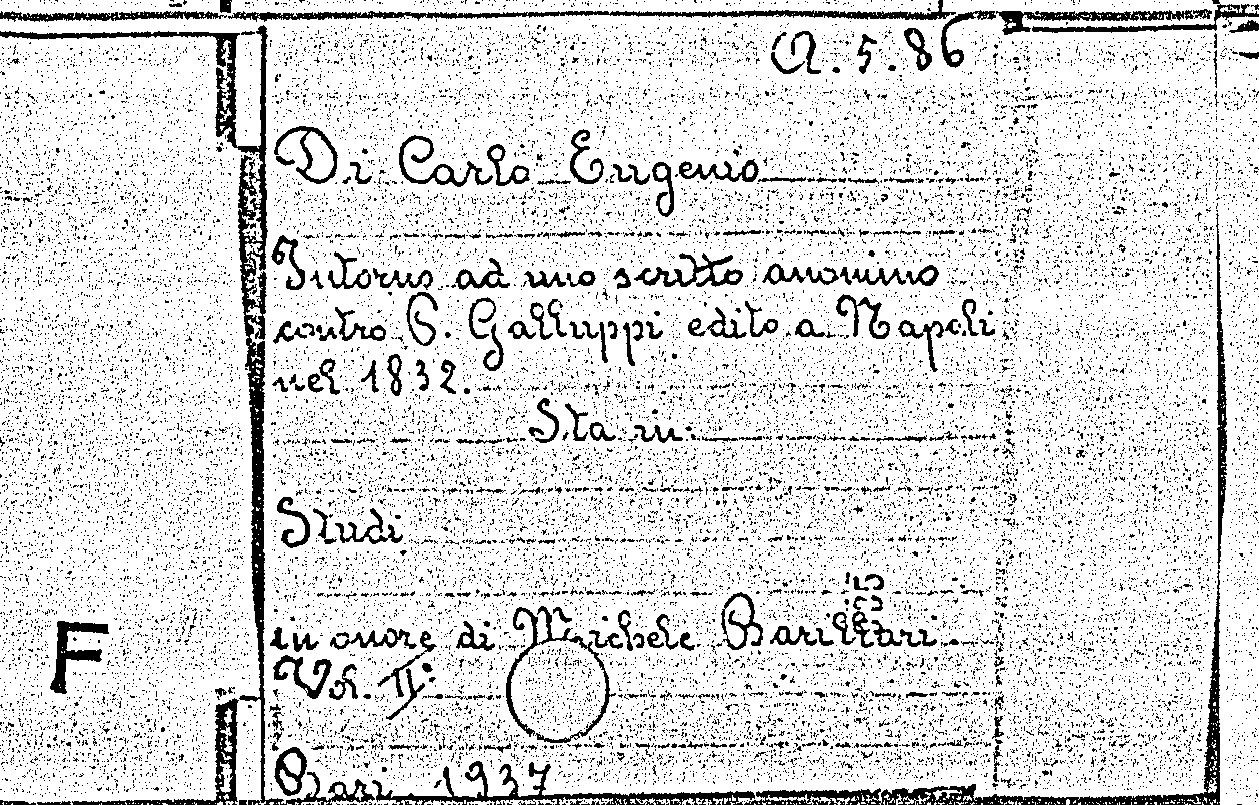 A. 5. 86
Di Carlo Eugenio
Intorno ad uno scritto anonimo
contro P. Galluppi edito a Napoli
nel 1832.
Sta in:
Studi
in onore di Michele Barillari.
Vol. II:
F
Bari. 1937